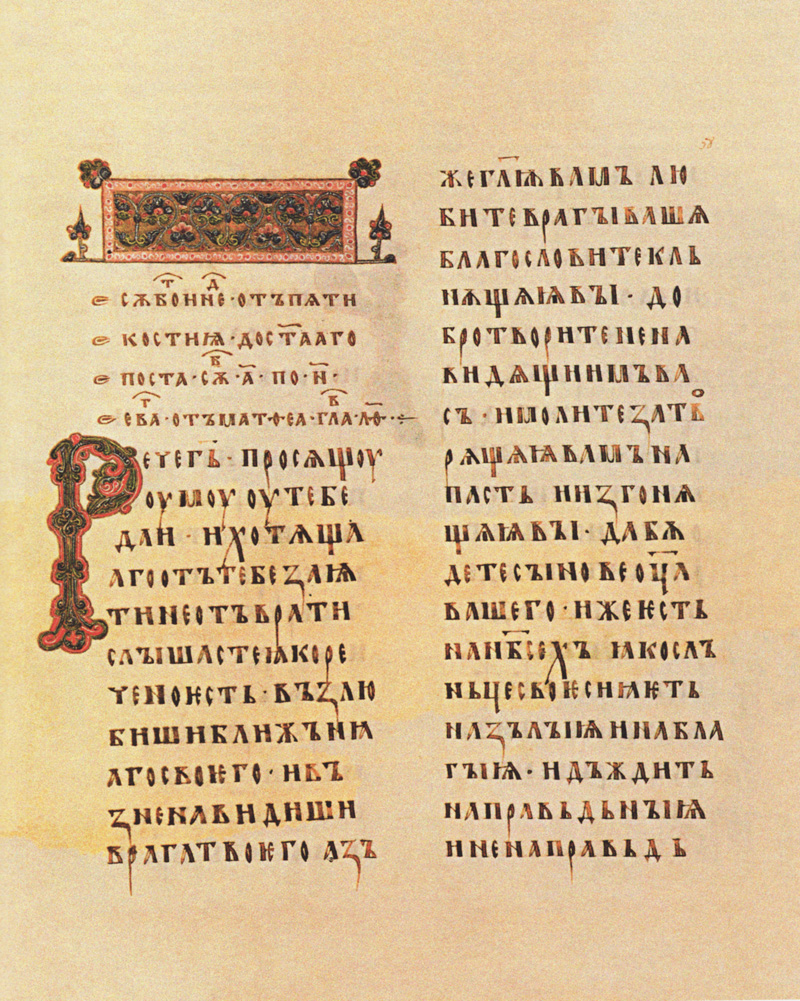 сѫбоннꙑе·отъпѧти
костиѩ·достааго
поста·сѫ·а·по·н·
ева·отъматѳеа·гла·ло·
Речегь·просѧщоу
оумоу оутебе
даи·ихотѧща
агоотътебезаѩ
тинеотъврати
слꙑшастеꙗкоре
ченоѥсть·възлю
бишиближьнꙗ
агосвоѥго·ивъ
зненавидиши
врагатвоѥго азъ
58
жеглѭвамъ лю
битеврагꙑвашѧ
благословитекль
нѧщѧѩвꙑ·до
бротворитенена
видѧщиимъва
съ·имолитезатъ
рѧщѧѩвамъна
пасть иизгонѧ
щѧѩвꙑ·дабѫ
детесꙑновеоца
вашего·ижеѥсть
нанбсехъ ꙗкосль
ньцесвоѥсиꙗѥть
назълꙑѩинабла
гꙑѩ·идъждить
направьдьнꙑѩ
иненаправьдь